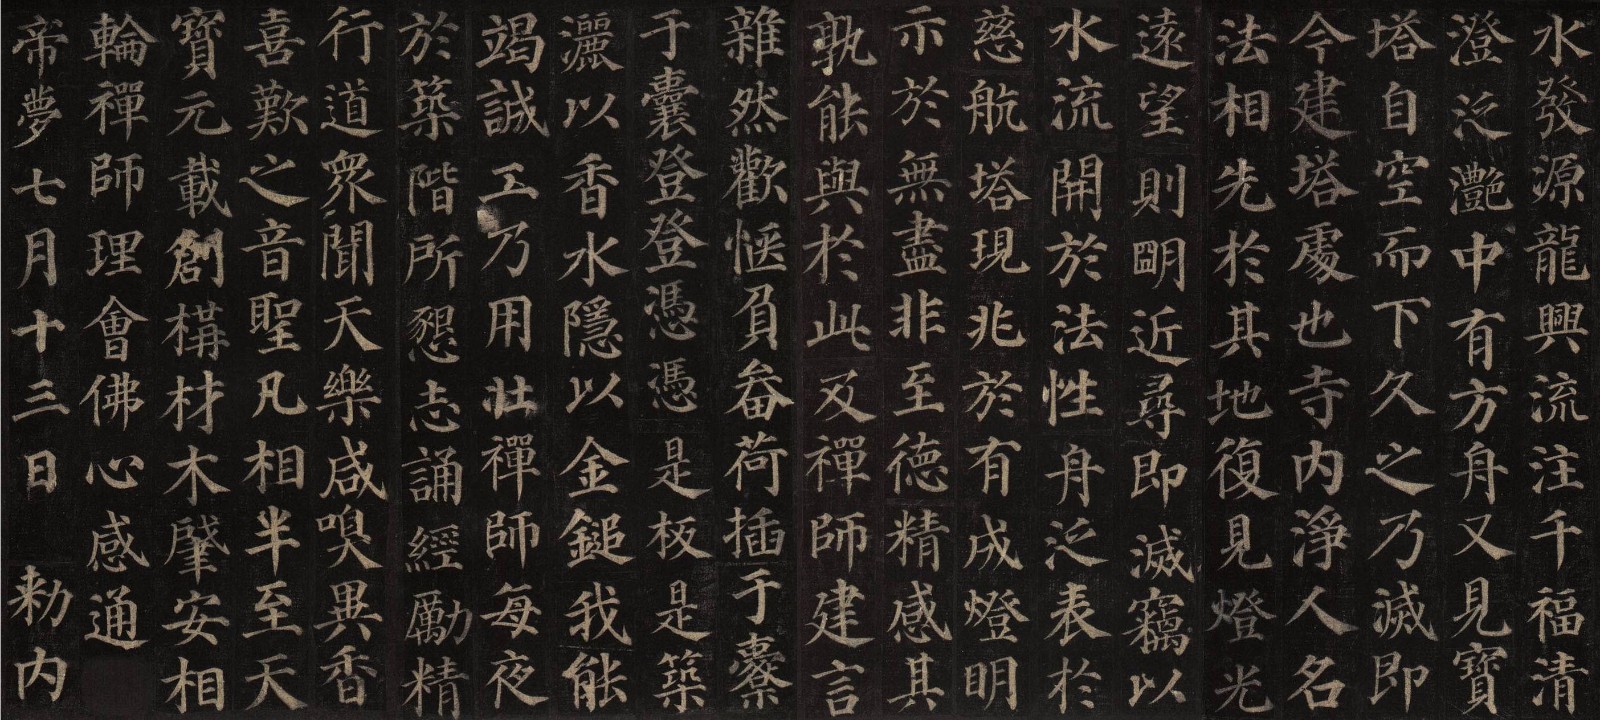 水發源龍興流注千福清
澄泛灩中有方舟又見寶
塔自空而下久之乃滅即
今建塔處也寺內淨人名
法相先於其地復見燈光
遠望則明近尋即滅竊以
水流開於法性舟泛表於
慈航塔現兆於有成燈明
示於無盡非至德精感其
孰能與於此及禪師建言
雜然歡愜負畚荷插于橐
于囊登登憑憑是板是築
灑以香水隱以金鎚我能
竭誠工乃用壯禪師每夜
於築階所懇志誦經勵精
行道眾聞天樂咸嗅異香
喜歎之音聖凡相半至天
寶元載創構材木肇安相
輪禪師理會佛心感通
帝夢七月十三日敕內